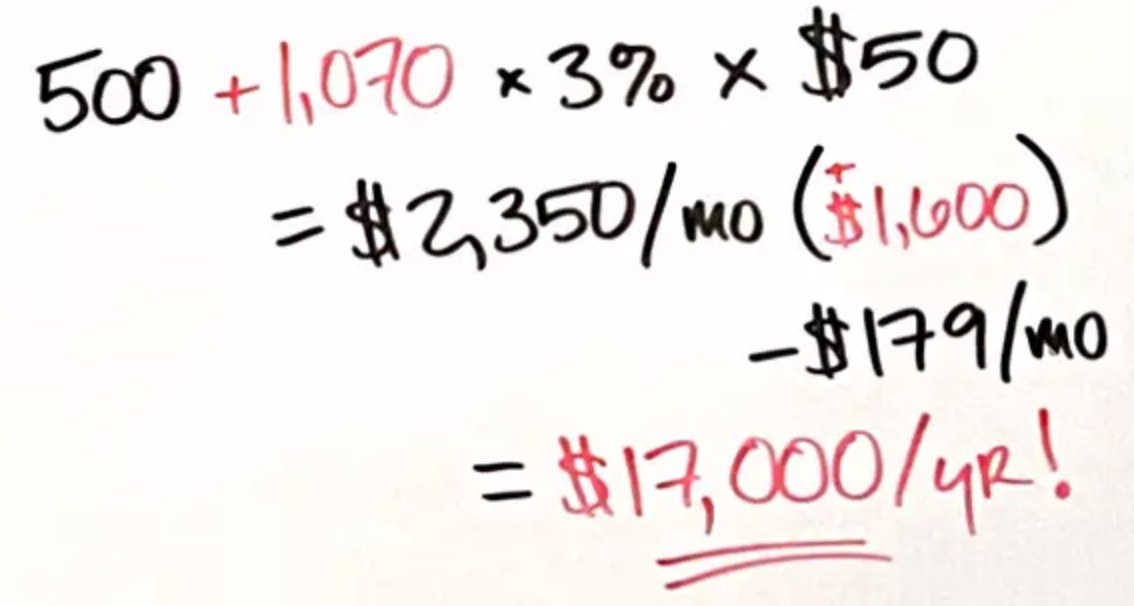 500 +1,070 × 3% × $50
= $2,350/mo (+$1,600)
-$179/mo
= $17,000/yR!